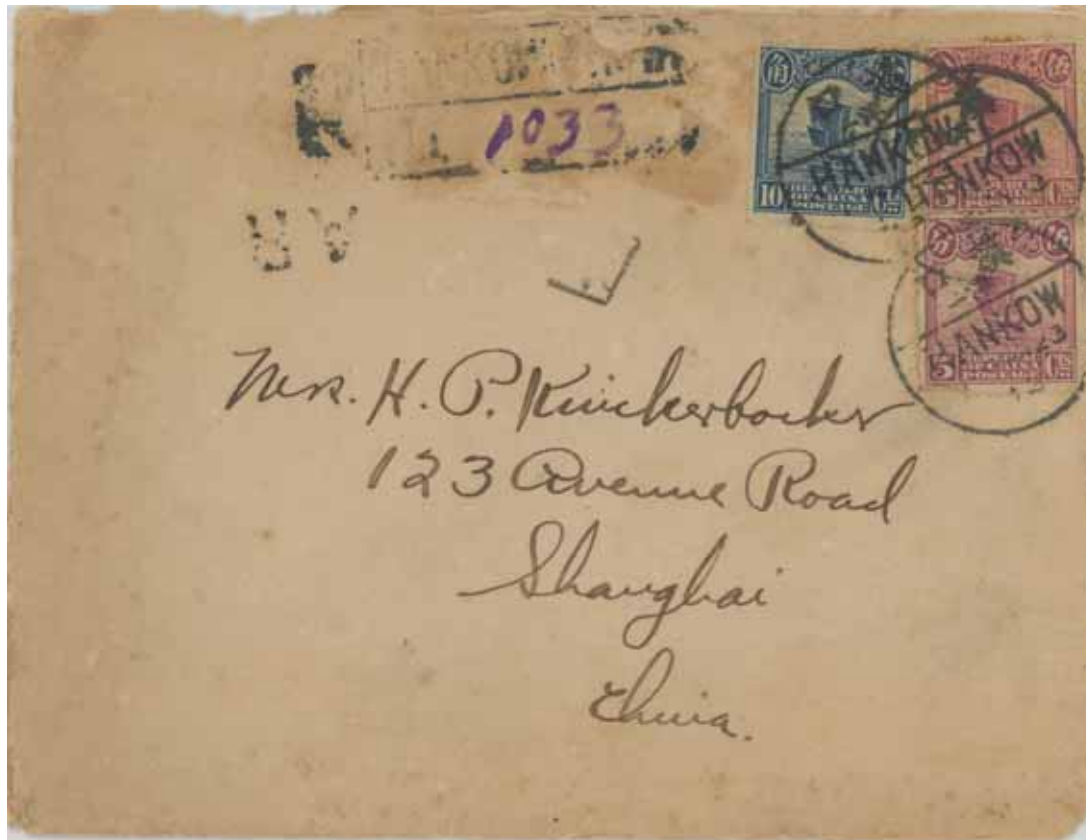 R HANKOW
1033
A R
10
5
HANKOW
HANKOW
HANKOW
23
Mrs. H. P. Knickerbocker
123 Avenue Road
Shanghai
China.